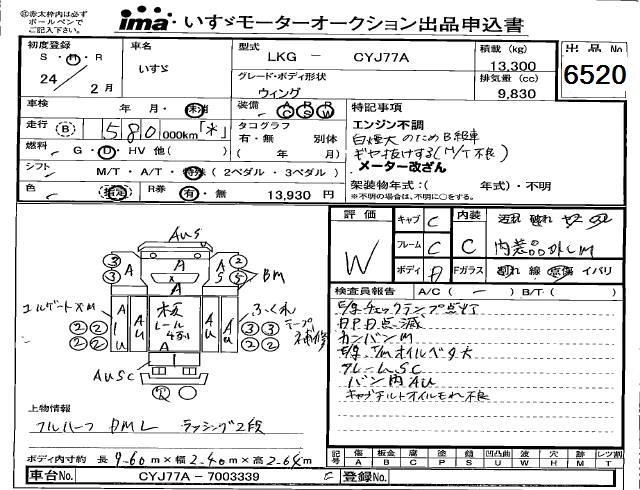 ㊟赤太枠内は必ず
ボールペンで
ご記入下さい。
ima・いすゞモーターオークション出品申込書
初度登録
S・H・R
24 2月
車名
いすゞ
型式
LKG - CYJ77A
積載 (kg)
13,300
出品No
6520
グレード・ボディ形状
ウィング
排気量 (cc)
9,830
車検
年 月・末消
装備
A/C P/S P/W
特記事項
エンジン不調
白煙大のためB級車
ギヤ抜けする(M/T不良)
メーター改ざん
走行 (B) 580 000km「*」
タコグラフ
有・無 別体
( 年 月)
燃料
G・D・HV 他( )
シフト
M/T・A/T・特殊 (2ペダル・3ペダル)
架装物年式:( 年式)・不明
※不明の場合は、不明に○をする。
色
指定
R券 有・無 13,930 円
評価
W
キャブ C
フレーム C
ボディ A
内装
C
汚れ 破れ
内装品外しM
Fガラス 割れ 線 点傷 イバリ
検査員報告 A/C ( - ) B/T ( )
E/gチェックランプ点灯
カンバンM
E/g, T/Mオイルベタ大
フレームSC
バン内AU
キャブチルトオイルモれ不良
AUS
3 A A A 2
3 S 5
BM
コルゲートXM
AIU AU 板 レール4本 A AU AU
ふくれ
テープ補修
2 2 3 3
2 2 2 2
AUSC
上物情報
フルハーフ DML ラッシング2段
ボディ内寸約 長 9.60 m×幅 2.40 m×高 2.64 m
記号 傷A 板金B 腐C 塗P 錆S 凹凸曲U 波W 穴H 外M レツ割T
車台No. CYJ77A - 7003339
登録No.